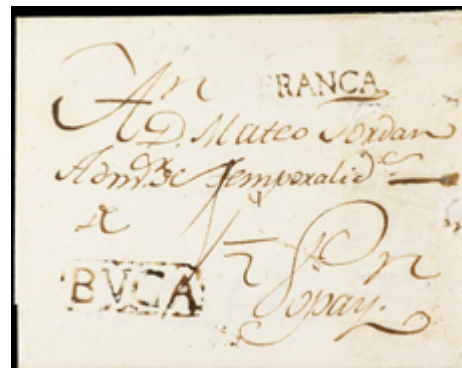 An FRANCA
D. Mateo Jordan
Adm.or de Temporalid.s
de
1/2 en
BVGA Popay.n